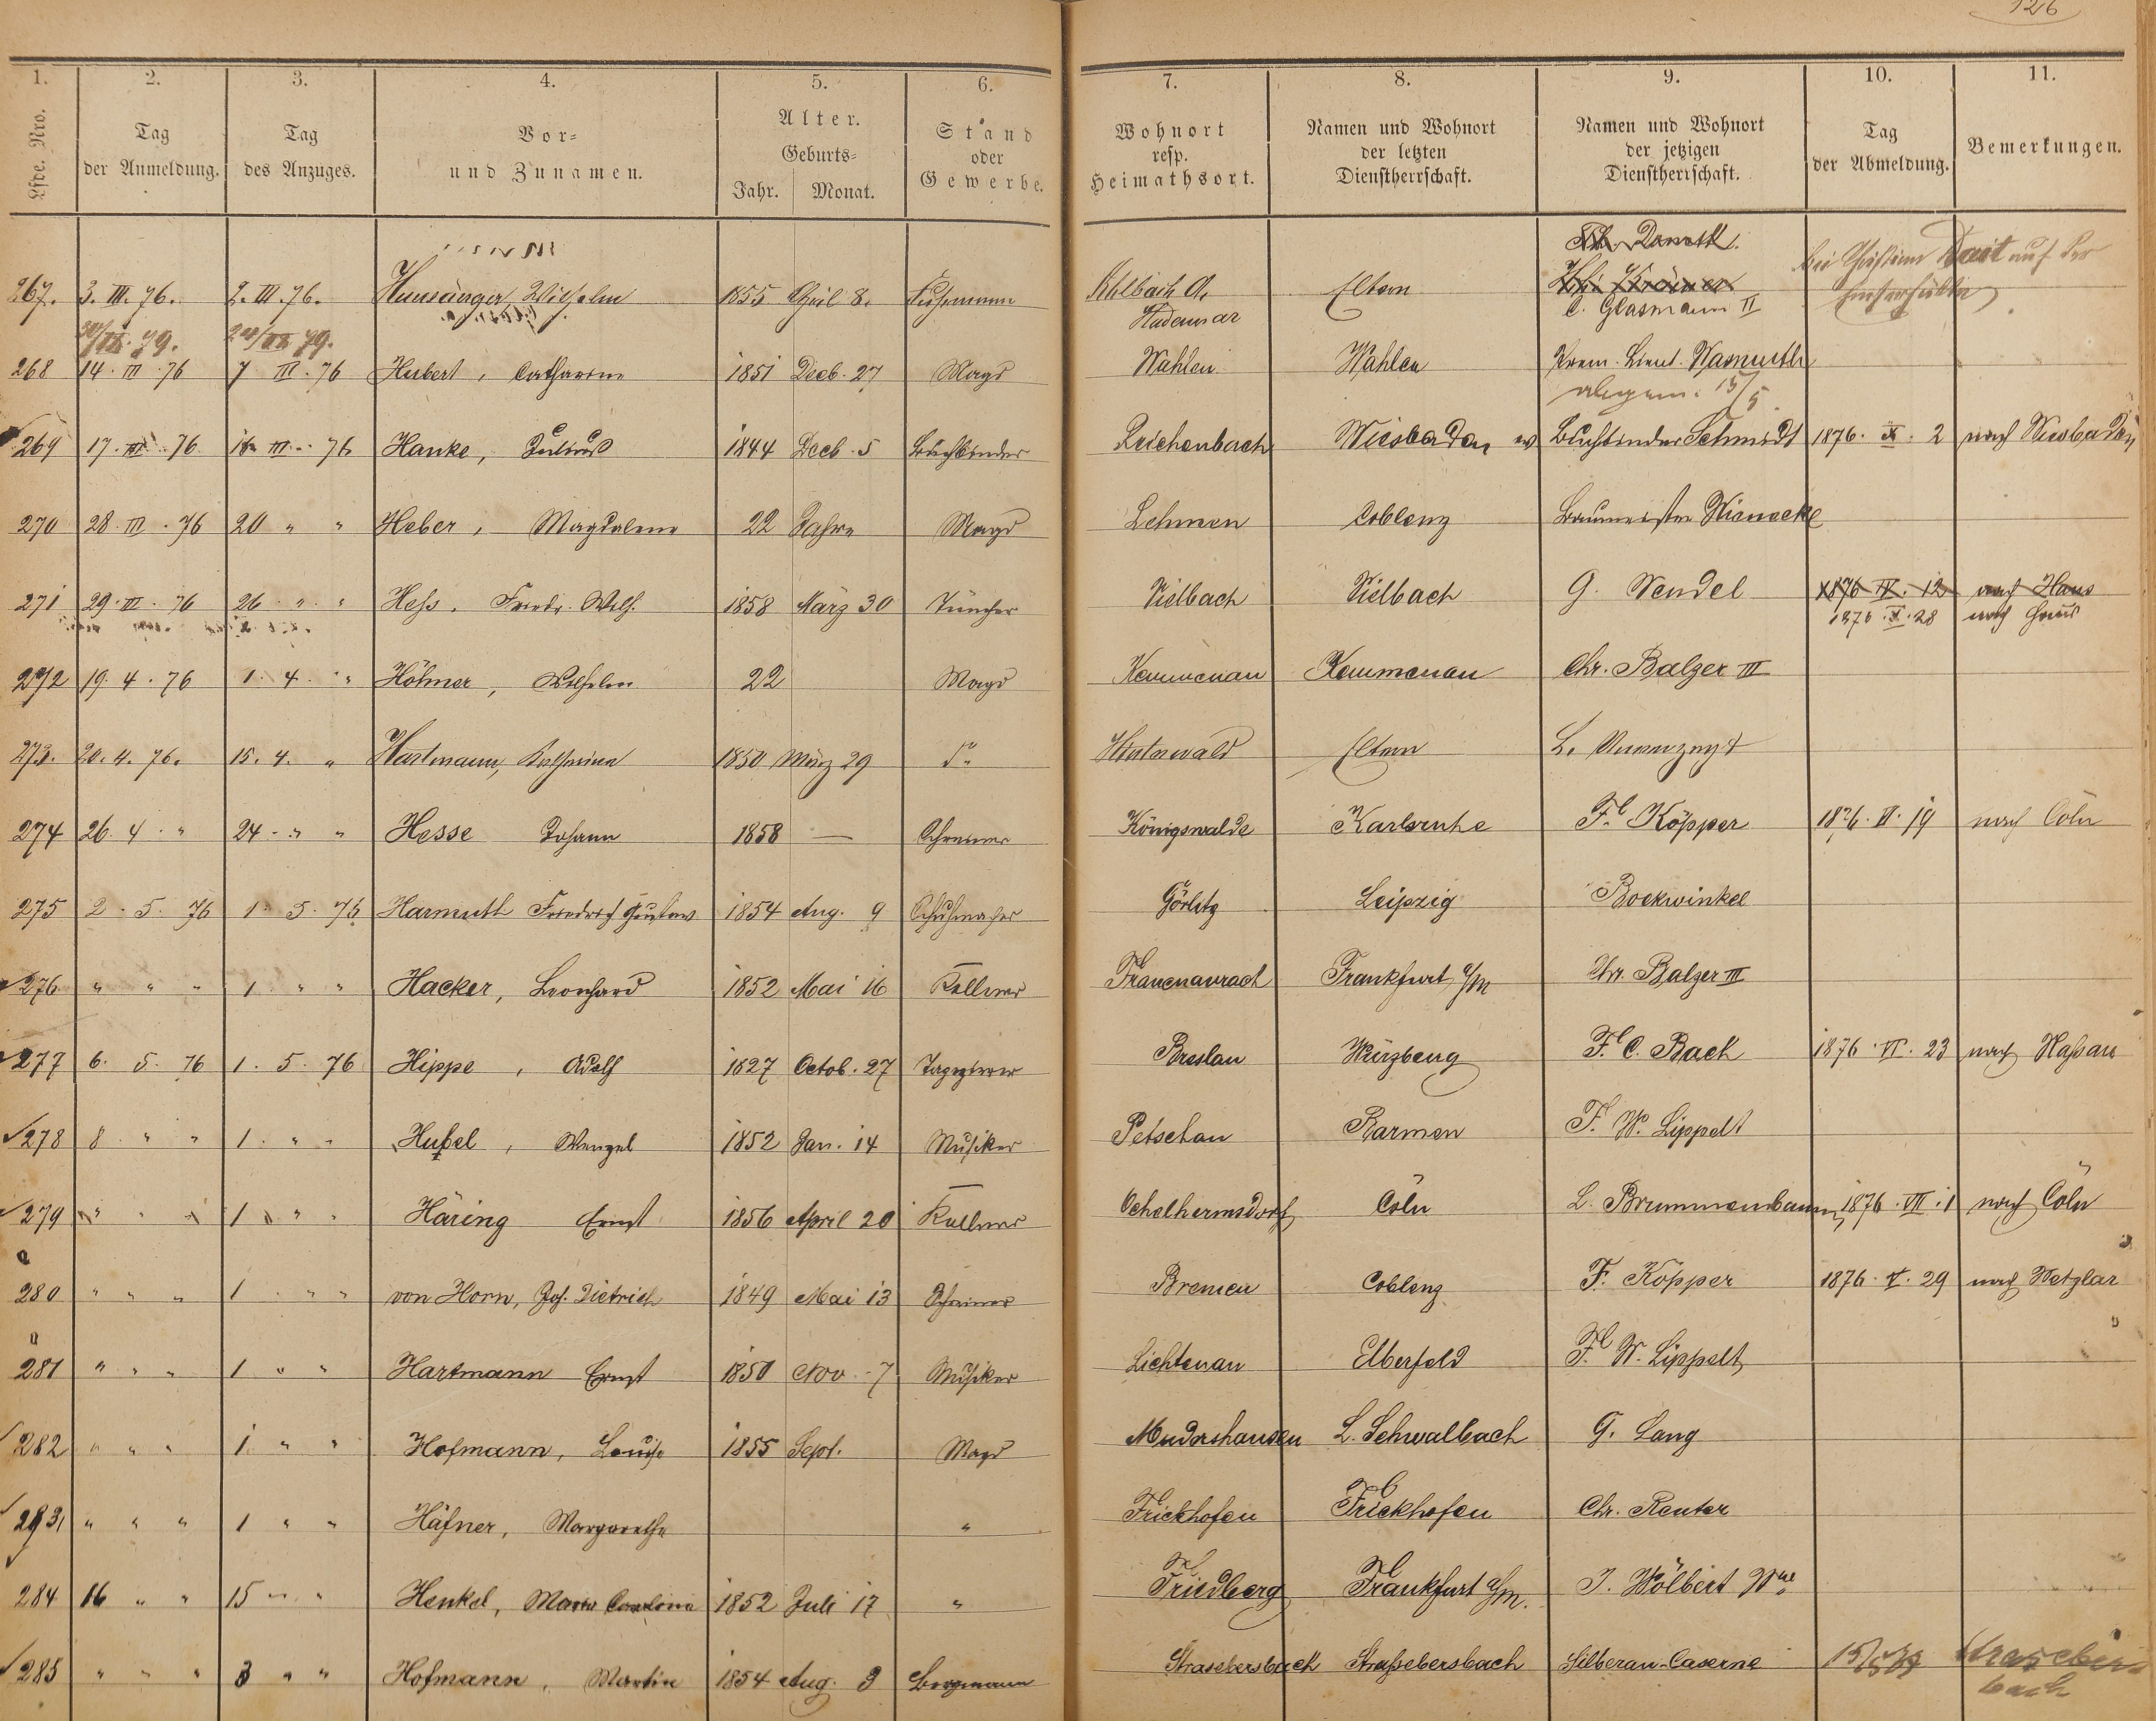 126
1. 2. 3. 4. 5. 6. 7. 8. 9. 10. 11.
Lfde. Nro. Tag der Anmeldung. Tag des Anzuges. Vor- und Zunamen. Alter. Geburts- Jahr. Monat. Stand oder Gewerbe. Wohnort resp. Heimathsort. Namen und Wohnort der letzten Dienstherrschaft. Namen und Wohnort der jetzigen Dienstherrschaft. Tag der Abmeldung. Bemerkungen.
267. 3. III. 76. 2. III. 76. Hunsänger, Wilhelm 1855 April 8. Fuhrmann Ahlbach A. Hadamar Eltern C. Glasmann II
268 14. III. 76 7 III. 76 Hubert, Catharina 1851 Decb. 27 Magd Wahlen Wahlen Prem. Lieut. Wasmuth
abgem. 15/5
269 17. III. 76 16 III. 76 Hanke, Julius 1844 Decb. 5 Buchbinder Reichenbach Wiesbaden Buchbinder Schmidt 1876. X. 2 nach Wiesbaden
270 28. III. 76 20 " " Heber, Magdalena 22 Jahre Magd Lehmen Coblenz Baumeister Wienecke
271 29. III. 76 26. " " Heß, Friedr. Wilh. 1858 März 30 Tüncher Vielbach Vielbach G. Wendel 1876 IV. 12 nach Haus
1876. X. 28 nach Haus
272 19. 4. 76 1. 4. " Höhner, Wilhelm 22 Magd Kemmenau Kemmenau Chr. Balzer III
273. 20. 4. 76. 15. 4. " Hartmann, Katharina 1850 März 29 do. Eltern
274 26. 4. " 24. " " Hesse Johann 1858 — Schreiner Königswalde Karlsruhe Fr. Köpper 1876. VI. 19 nach Cöln
275 2. 5. 76 1. 5. 76 Harmuth Friedrich Gustav 1854 Aug. 9 Schuhmacher Görlitz Leipzig Bockwinkel
276. " " " 1 " " Hacker, Leonhard 1852 Mai 16 Kellner Frauenaurach Frankfurt a/m Chr. Balzer III
277 6. 5. 76 1. 5. 76 Hippe, Adolf 1827 Octob. 27 Tapezierer Breslau Würzburg F. C. Bach 1876. VI. 23 nach Naßau
278 8. " " 1. " " Hußel, Wenzel 1852 Jan. 14 Musiker Petschau Barmen F. W. Lippelt
279 " " " 1 " " Häring Ernst 1856 April 20 Kellner Ochelhermsdorf Cöln L. Brummenbaum 1876. VII. 1 nach Cöln
280 " " " 1 " " von Horn, Joh. Dietrich 1849 Mai 13 Schreiner Bremen Coblenz F. Köpper 1876. V. 29 nach Wetzlar
281 " " " 1 " " Hartmann Ernst 1850 Nov. 7 Musiker Lichtenau Elberfeld F. W. Lippelt
282 " " " 1 " " Hofmann, Louise 1855 Sept. Magd Mudershausen L. Schwalbach G. Lang
283 " " " 1 " " Häfner, Margarethe " Frickhofen Frickhofen Chr. Reuter
284 16 " " 15 " " Henkel, Maria Carolina 1852 Juli 17 " Friedberg Frankfurt a/m. J. Wölbert Wwe
285 " " " 3 " " Hofmann, Martin 1854 Aug. 3 Bergmann Strasebersbach Straßebersbach Silberau-Caserne